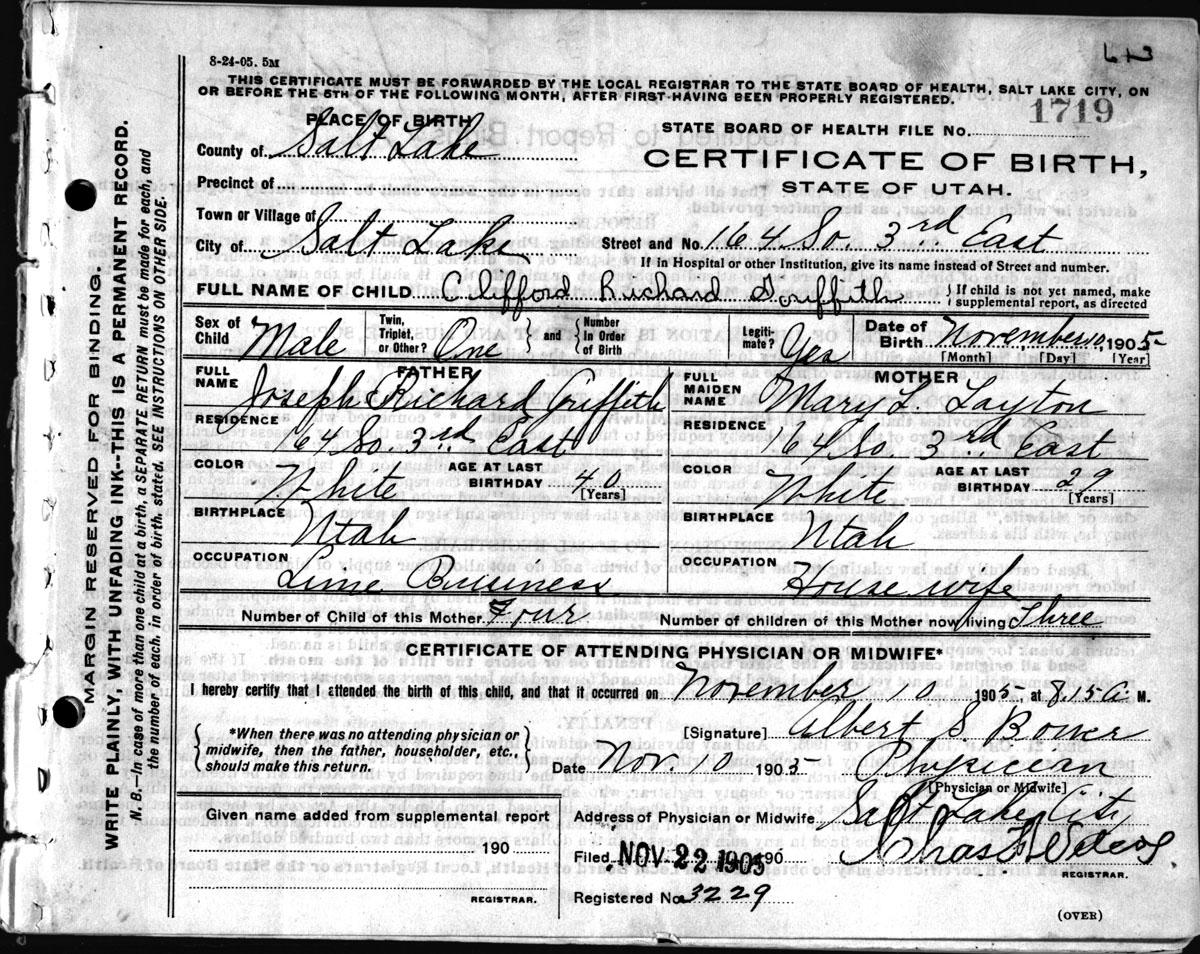 8-24-05. 5M
THIS CERTIFICATE MUST BE FORWARDED BY THE LOCAL REGISTRAR TO THE STATE BOARD OF HEALTH, SALT LAKE CITY, ON
OR BEFORE THE 5TH OF THE FOLLOWING MONTH, AFTER FIRST HAVING BEEN PROPERLY REGISTERED.
PLACE OF BIRTH
STATE BOARD OF HEALTH FILE No. 1719
County of Salt Lake
CERTIFICATE OF BIRTH,
Precinct of
STATE OF UTAH.
Town or Village of
City of Salt Lake Street and No. 164 So. 3rd East
If in Hospital or other Institution, give its name instead of Street and number.
FULL NAME OF CHILD Clifford Richard Griffith { If child is not yet named, make supplemental report, as directed
Sex of Child Male Twin, Triplet, or Other? One } and { Number in Order of Birth Legitimate? Yes Date of Birth November 10, 1905
[Month] [Day] [Year]
FATHER
FULL NAME Joseph Richard Griffith
RESIDENCE 164 So. 3rd East
COLOR White AGE AT LAST BIRTHDAY 40 [Years]
BIRTHPLACE Utah
OCCUPATION Lime Business
MOTHER
FULL MAIDEN NAME Mary L. Layton
RESIDENCE 164 So 3rd East
COLOR White AGE AT LAST BIRTHDAY 29 [Years]
BIRTHPLACE Utah
OCCUPATION House wife
Number of Child of this Mother Four Number of children of this Mother now living Three
CERTIFICATE OF ATTENDING PHYSICIAN OR MIDWIFE*
I hereby certify that I attended the birth of this child, and that it occurred on November 10 1905 at 8.15 a. M.
{ *When there was no attending physician or
midwife, then the father, householder, etc.,
should make this return. }
[Signature] Albert S. Bower
Date Nov 10 1905 Physician
[Physician or Midwife]
Given name added from supplemental report
190
REGISTRAR.
Address of Physician or Midwife Salt Lake City
Filed NOV 22 1905 190
REGISTRAR.
Registered No. 3229
(OVER)
MARGIN RESERVED FOR BINDING.
WRITE PLAINLY, WITH UNFADING INK--THIS IS A PERMANENT RECORD.
N. B.--In case of more than one child at a birth, a SEPARATE RETURN must be made for each, and
the number of each, in order of birth, stated. SEE INSTRUCTIONS ON OTHER SIDE.